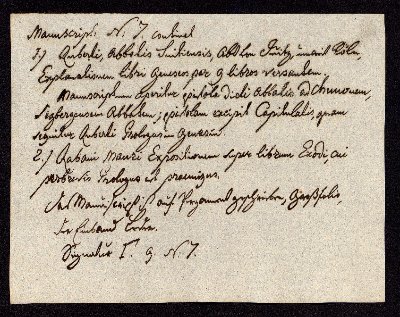 Manuscript. N. 7. continet
1.) Ruberti, Abbatis Tuitiensis, Abtey Deutz, unweit Köln,
Explanationem libri Geneseos per 9 libros versantem.
Manuscriptum aperitur epistola dicti Abbatis ad Chunonem,
Segbergensem Abbatem; epistolam excipit Capitulatio, quam
sequitur Ruberti Prologus in Genesin.
2.) Rabani Mauri Expositionem super librum Exodi, cui
perbrevis Prologus est praemissus.
Das Manuscript ist auf Pergament geschrieben, Großfolio,
der Einband Leder.
Signatur T. 9. N. 7.